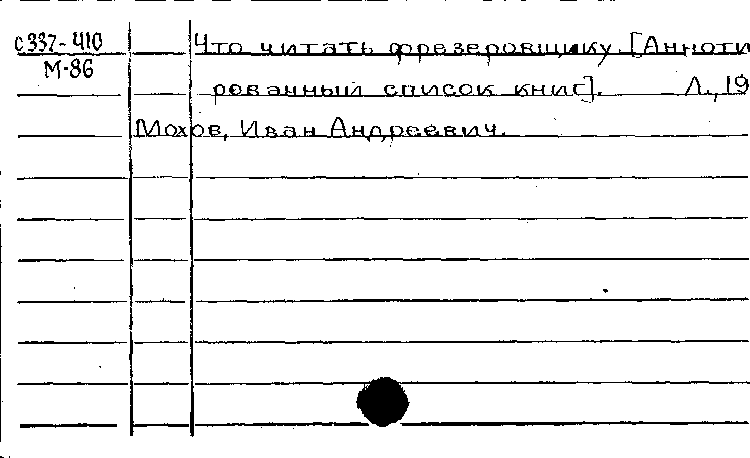 С337-410
М-86
Что читать фрезеровщику. [Анноти
рованный список книг]. Л., 19
Мохов, Иван Андреевич.